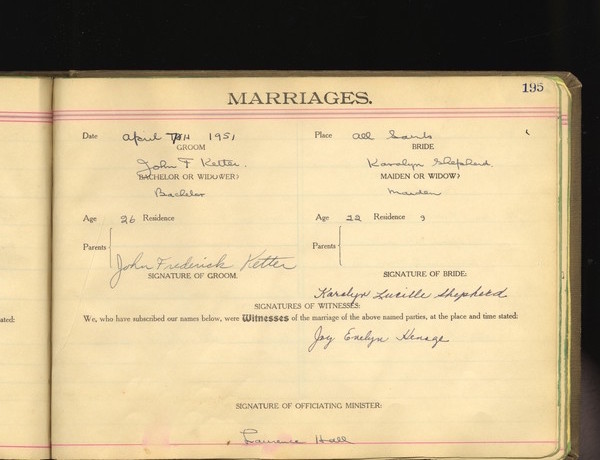 195
MARRIAGES.
Date April 7TH 1951 Place All Saints
GROOM BRIDE
John F Ketter. Karolyn Shepherd.
(BACHELOR OR WIDOWER) MAIDEN OR WIDOW)
Bachelor Maiden
Age 26 Residence Age 22 Residence
Parents Parents
John Frederick Ketter
SIGNATURE OF GROOM. SIGNATURE OF BRIDE:
Karolyn Lucille Shepherd
SIGNATURES OF WITNESSES:
ated: We, who have subscribed our names below, were Witnesses of the marriage of the above named parties, at the place and time stated:
Joy Evelyn Henage
SIGNATURE OF OFFICIATING MINISTER:
Laurence Hall